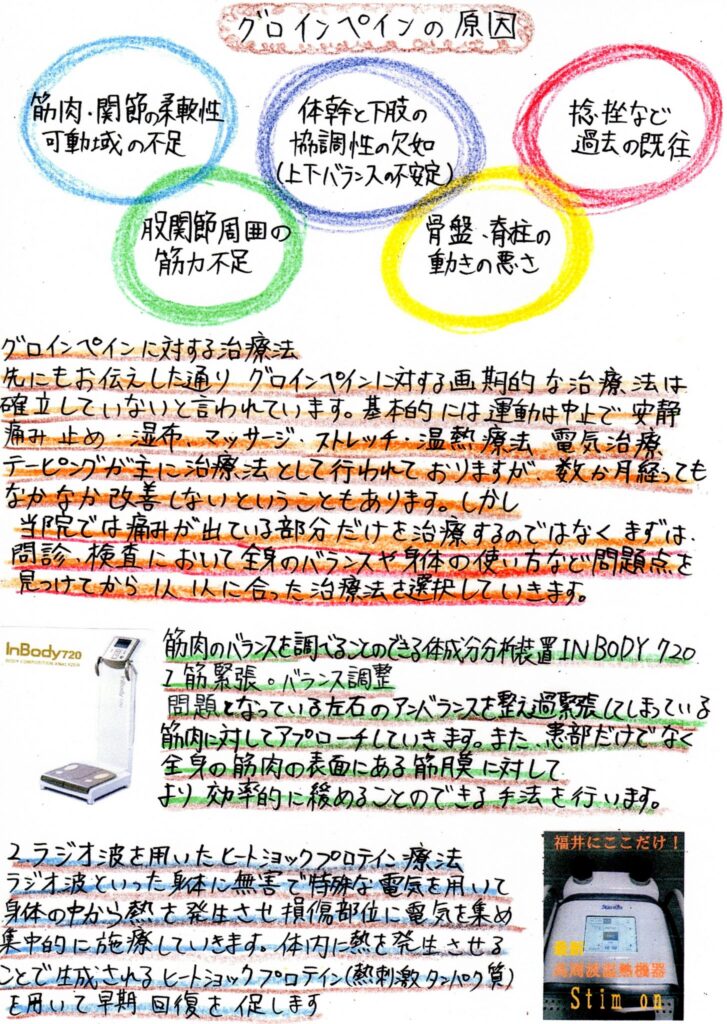 グロインペインの原因
筋肉・関節の柔軟性
可動域の不足
体幹と下肢の
協調性の欠如
(上下バランスの不安定)
捻挫など
過去の既往
股関節周囲の
筋力不足
骨盤、脊柱の
動きの悪さ
グロインペインに対する治療法
先にもお伝えした通り グロインペインに対する画期的な治療法は
確立していないと言われています。基本的には運動は中止で 安静
痛み止め・湿布、マッサージ・ストレッチ・温熱療法 電気治療
テーピングが主に治療法として行われておりますが、数か月経っても
なかなか改善しないということもあります。しかし
当院では痛みが出ている部分だけを治療するのではなく まずは、
問診、検査において全身のバランスや身体の使い方など問題点を
見つけてから 1人1人に合った治療法を選択していきます。
InBody720
BODY COMPOSITION ANALYZER
筋肉のバランスを調べることのできる体成分分析装置INBODY 720
1 筋緊張。バランス調整
問題となっている左右のアンバランスを整え過緊張してしまっている
筋肉に対してアプローチしていきます。また、患部だけでなく
全身の筋肉の表面にある筋膜に対して
より効率的に緩めることのできる手法を行います。
2.ラジオ波を用いたヒートショックプロテイン療法
ラジオ波といった身体に無害で特殊な電気を用いて
身体の中から熱を発生させ損傷部位に電気を集め
集中的に施療していきます。体内に熱を発生させる
ことで生成されるヒートショックプロテイン(熱刺激タンパク質)
を用いて早期回復を促します
福井にここだけ!
最新
高周波温熱機器
Stim on